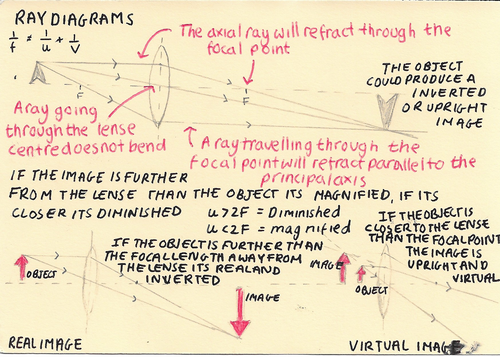 RAY DIAGRAMS
1/f = 1/u + 1/v
The axial ray will refract through the
focal point
F
F
THE OBJECT
COULD PRODUCE A
INVERTED
OR UPRIGHT
IMAGE
A ray going
through the lense
centre does not bend
A ray travelling through the
focal point will refract parallel to the
principal axis
IF THE IMAGE IS FURTHER
FROM THE LENSE THAN THE OBJECT ITS MAGNIFIED, IF ITS
CLOSER ITS DIMINISHED
u>2F = Diminished
u<2F = magnified
IF THE OBJECT IS FURTHER THAN
THE FOCAL LENGTH AWAY FROM
THE LENSE ITS REAL AND
INVERTED
OBJECT
IMAGE
REAL IMAGE
IF THE OBJECT IS
CLOSER TO THE LENSE
THAN THE FOCAL POINT
THE IMAGE IS
UPRIGHT AND
VIRTUAL
IMAGE
OBJECT
VIRTUAL IMAGE